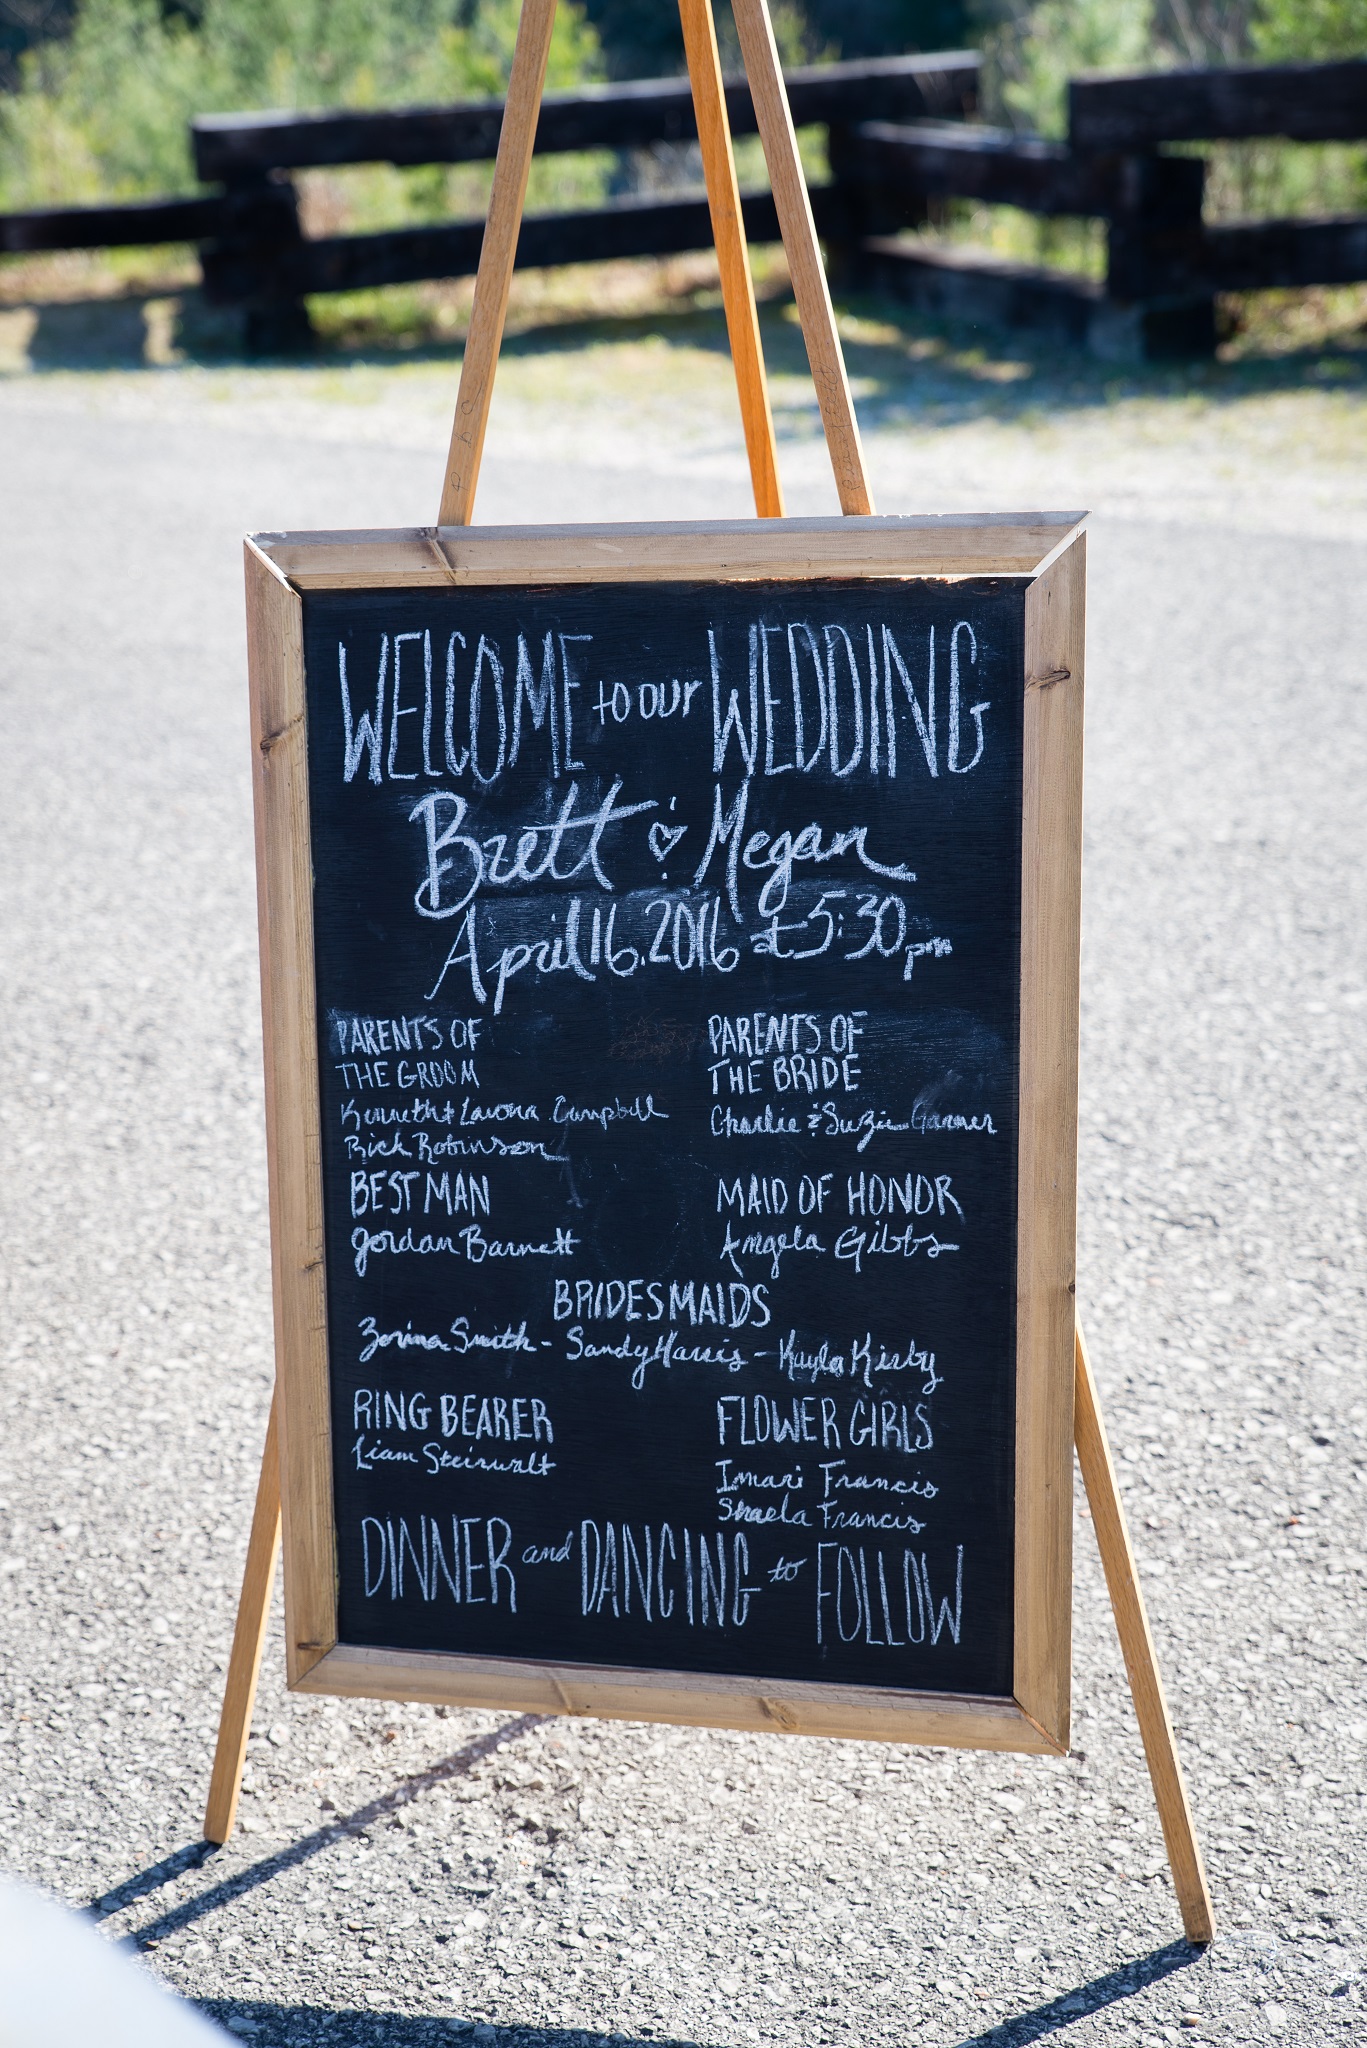 WELCOME to our WEDDING
Brett & Megan
April 16. 2016 at 5:30 pm
PARENTS OF
THE GROOM
Kenneth & Lavona Campbell
Rick Robinson
PARENTS OF
THE BRIDE
Charlie & Suzie Garner
BEST MAN
Jordan Barnett
MAID OF HONOR
Angela Gibbs
BRIDESMAIDS
Zorina Smith - Sandy Harris - Kayla Kirby
RING BEARER
Liam Steinwalt
FLOWER GIRLS
Imari Francis
Francis
DINNER and DANCING to FOLLOW